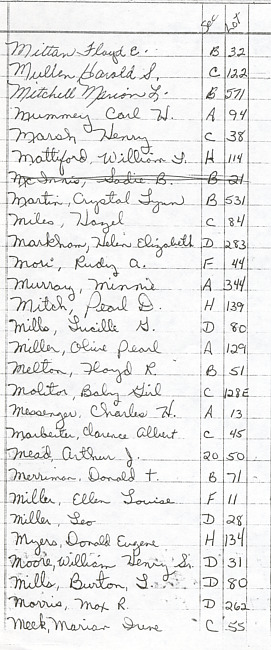 Sec Lot
Mittan Floyd E. B 32
Mullen Harold S. C 122
Mitchell Merion L. B 571
Mummey Carl W. A 94
Marsh Henry C 38
Mattiford, William T. H 114
Mc Innis, Sadie B. B 21
Martin, Crystal Lynn B 531
Miles, Hazel C 84
Markham, Helen Elizabeth D 283
Mori, Rudy A. F 44
Murray, Minnie A 344
Mitch, Pearl D. H 139
Mills, Lucille G. D 80
Miller, Olive Pearl A 129
Melton, Floyd R. B 51
Molitor, Baby Girl C 128E
Messenger, Charles H. A 13
Marbeiter, Clarence Albert C 45
Mead, Arthur J. 20 50
Merriman, Donald T. B 71
Miller, Ellen Louise F 11
Miller, Leo D 28
Myers, Donald Eugene H 134
Moore, William Henry Sr. D 31
Mills, Burton, L. D 80
Morris, Max R. D 262
Meek, Marian Irene C 55